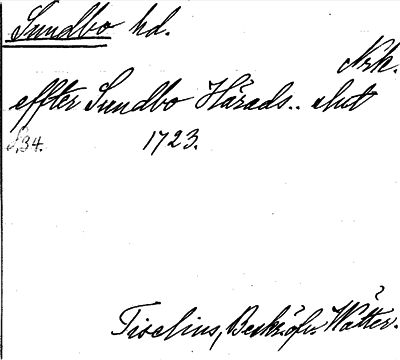 Sundbo hd.
Nrk.
effter Sundbo Härads.. slut
S.34. 1723.
Tiselius, Beskr. öfv. Wätter.